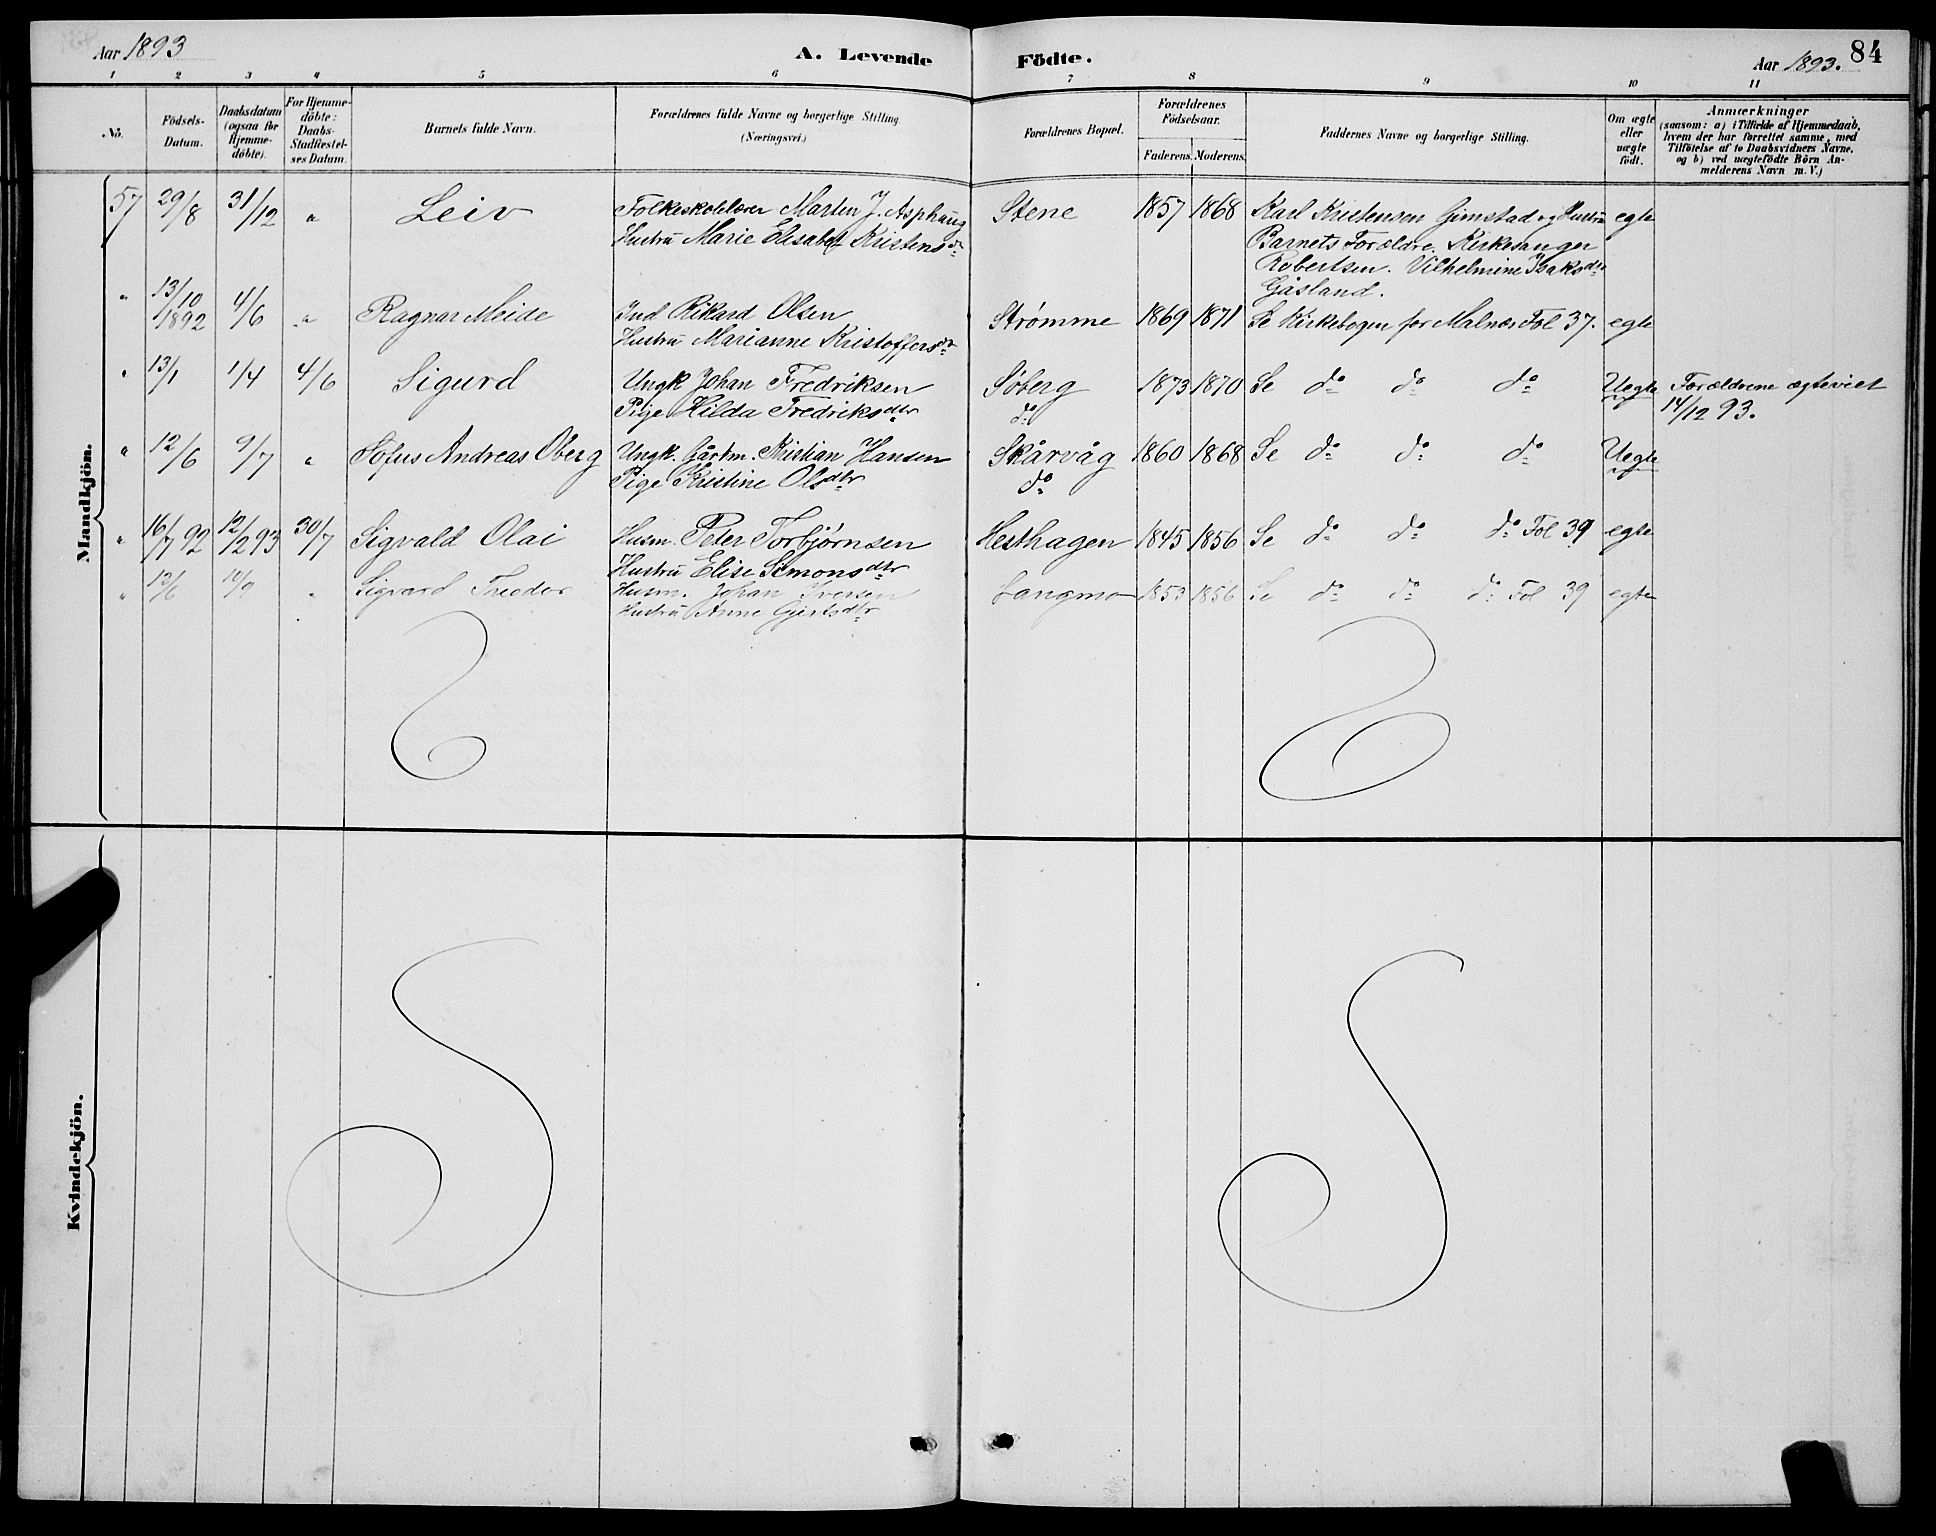 Aar 1893
A. Levende Födte.
Aar 1893. 84
1 2 3 4 5 6 7 8 9 10 11
No. Födsels-Datum. Daabsdatum (ogsaa for Hjemme-döbte). For Hjemme-döbte: Daabs-Stadfæstel-ses Datum. Barnets fulde Navn. Forældrenes fulde Navne og borgerlige Stilling (Næringsvei.) Forældrenes Bopæl. Forældrenes Födselsaar. Faderens. Moderens. Faddernes Navne og borgerlige Stilling. Om ægte eller uægte födt. Anmærkninger (saasom: a) i Tilfælde af Hjemmedaab, hvem der har forrettet samme, med Tilföielse af to Daabsvidners Navne, og b) ved uægtefödte Börn An-melderens Navn m. V.)
Mandkjön.
57 29/8 31/12 " Leiv Folkeskolelærer Marten J. Asphaug Stene 1857 1868 Karl Kristensen Gimstad og Hustru egte
Hustru Marie Elisabet Kristensdtr Barnets Forældre. Kirkesanger
Robertsen. Vilhelmine Isaksdtr
Gåsland.
" 13/10 1892 4/6 " Ragnar Meide Ind Rikard Olsen Strømme 1869 1871 Se Kirkebogen for Malnes Fol 37. egte
Hustru Marianne Kristoffersdtr
" 13/1 1/4 4/6 Sigurd Ungk Johan Fredriksen Søberg 1873 1870 Se do do do Uegte Forældrene ægteviet
Pige Hilda Fredriksdtr do 14/12 93.
" 12/6 9/7 " Sofus Andreas Oberg Ungk. Gårtm. Kristian Hansen Skårvåg 1860 1868 Se do do do Uegte
Pige Kristine Olsdtr do
" 16/7 92 12/2 93 30/7 Sigvald Olai Husm. Peter Torbjørnsen Hesthagen 1845 1856 Se do do do Fol 39 egte
Hustru Elise Simonsdtr
" 12/6 10/9 " Sigvard Theodor Husm. Johan Iversen Langmo 1853 1856 Se do do do Fol 39 egte
Hustru Anne Gjertsdtr
Kvindekjön.